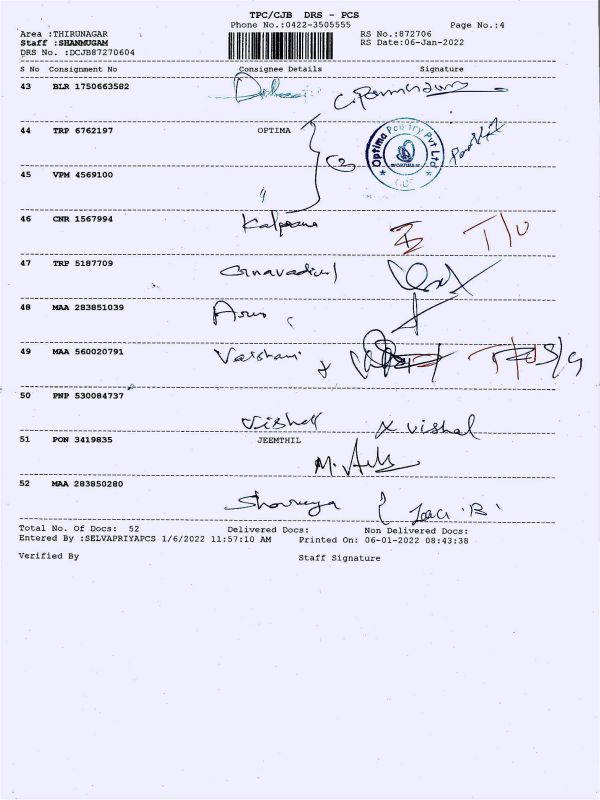 TPC/CJB DRS - PCS
Phone No.:0422-3505555 Page No.:4
Area :THIRUNAGAR RS No.:872706
Staff :SHANMUGAM RS Date:06-Jan-2022
DRS No. :DCJB87270604
S No Consignment No Consignee Details Signature
43 BLR 1750663582
44 TRP 6762197 OPTIMA
Optima Poultry Pvt Ltd
45 VPM 4569100 〃
46 CNR 1567994 Kalpana T/U
47 TRP 5187709
48 MAA 283851039 Arun
49 MAA 560020791 Vaishani
50 PNP 530084737 Vishal x vishal
51 PON 3419835 JEEMTHIL
52 MAA 283850280
Total No. Of Docs: 52 Delivered Docs: Non Delivered Docs:
Entered By :SELVAPRIYAPCS 1/6/2022 11:57:10 AM Printed On: 06-01-2022 08:43:38
Verified By Staff Signature